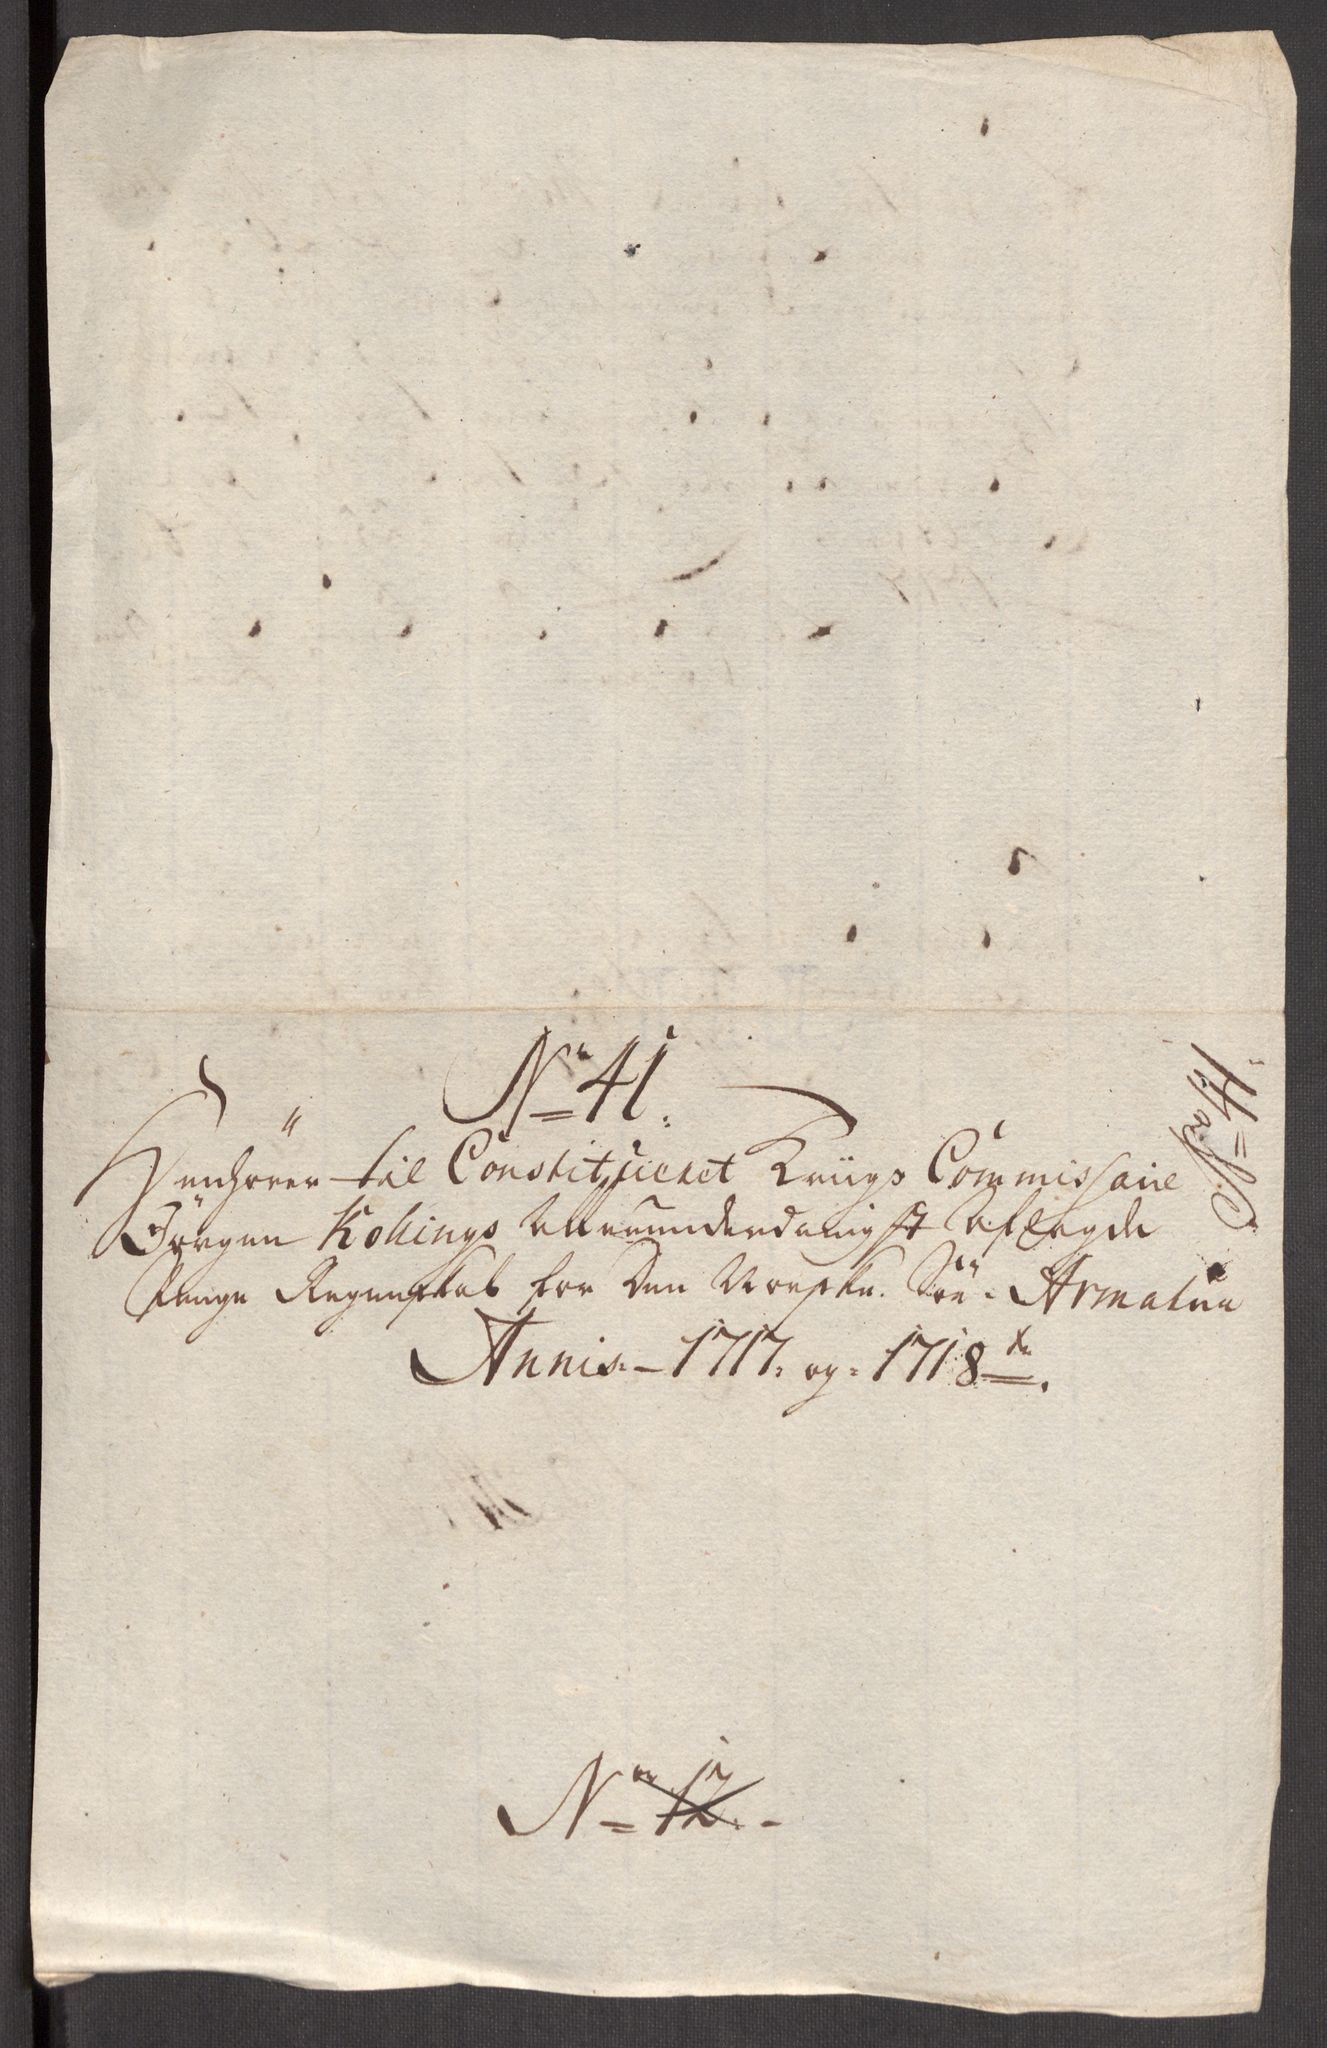 No 41.
Henhører til Constitueret Kriigs Commissarie
Jørgen Kollings allerunderdanigst aflagde
Penge Regenskab for den Norske Søe-Armatur
Annis 1717 og 1718
No 12
No 41